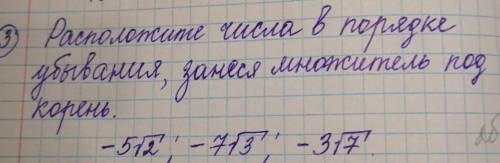 3) Расположите числа в порядке
убывания, занеся множитель под
корень.
-5√2; -7√3; -3√7